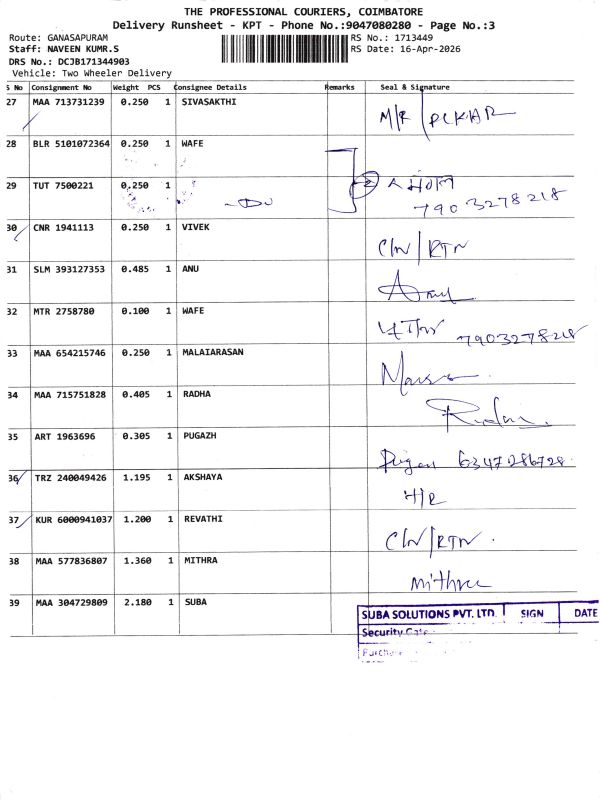 THE PROFESSIONAL COURIERS, COIMBATORE
Delivery Runsheet - KPT - Phone No.:9047080280 - Page No.:3
Route: GANASAPURAM RS No.: 1713449
Staff: NAVEEN KUMR.S RS Date: 16-Apr-2026
DRS No.: DCJB171344903
Vehicle: Two Wheeler Delivery
S No Consignment No Weight PCS Consignee Details Remarks Seal & Signature
27 MAA 713731239 0.250 1 SIVASAKTHI
28 BLR 5101072364 0.250 1 WAFE
29 TUT 7500221 0.250 1
7903278218
30 CNR 1941113 0.250 1 VIVEK
31 SLM 393127353 0.485 1 ANU
32 MTR 2758780 0.100 1 WAFE 7903278218
33 MAA 654215746 0.250 1 MALAIARASAN
34 MAA 715751828 0.405 1 RADHA
35 ART 1963696 0.305 1 PUGAZH 6347286728
36 TRZ 240049426 1.195 1 AKSHAYA
37 KUR 6000941037 1.200 1 REVATHI
38 MAA 577836807 1.360 1 MITHRA Mithra
39 MAA 304729809 2.180 1 SUBA
SUBA SOLUTIONS PVT. LTD. SIGN DATE
Security